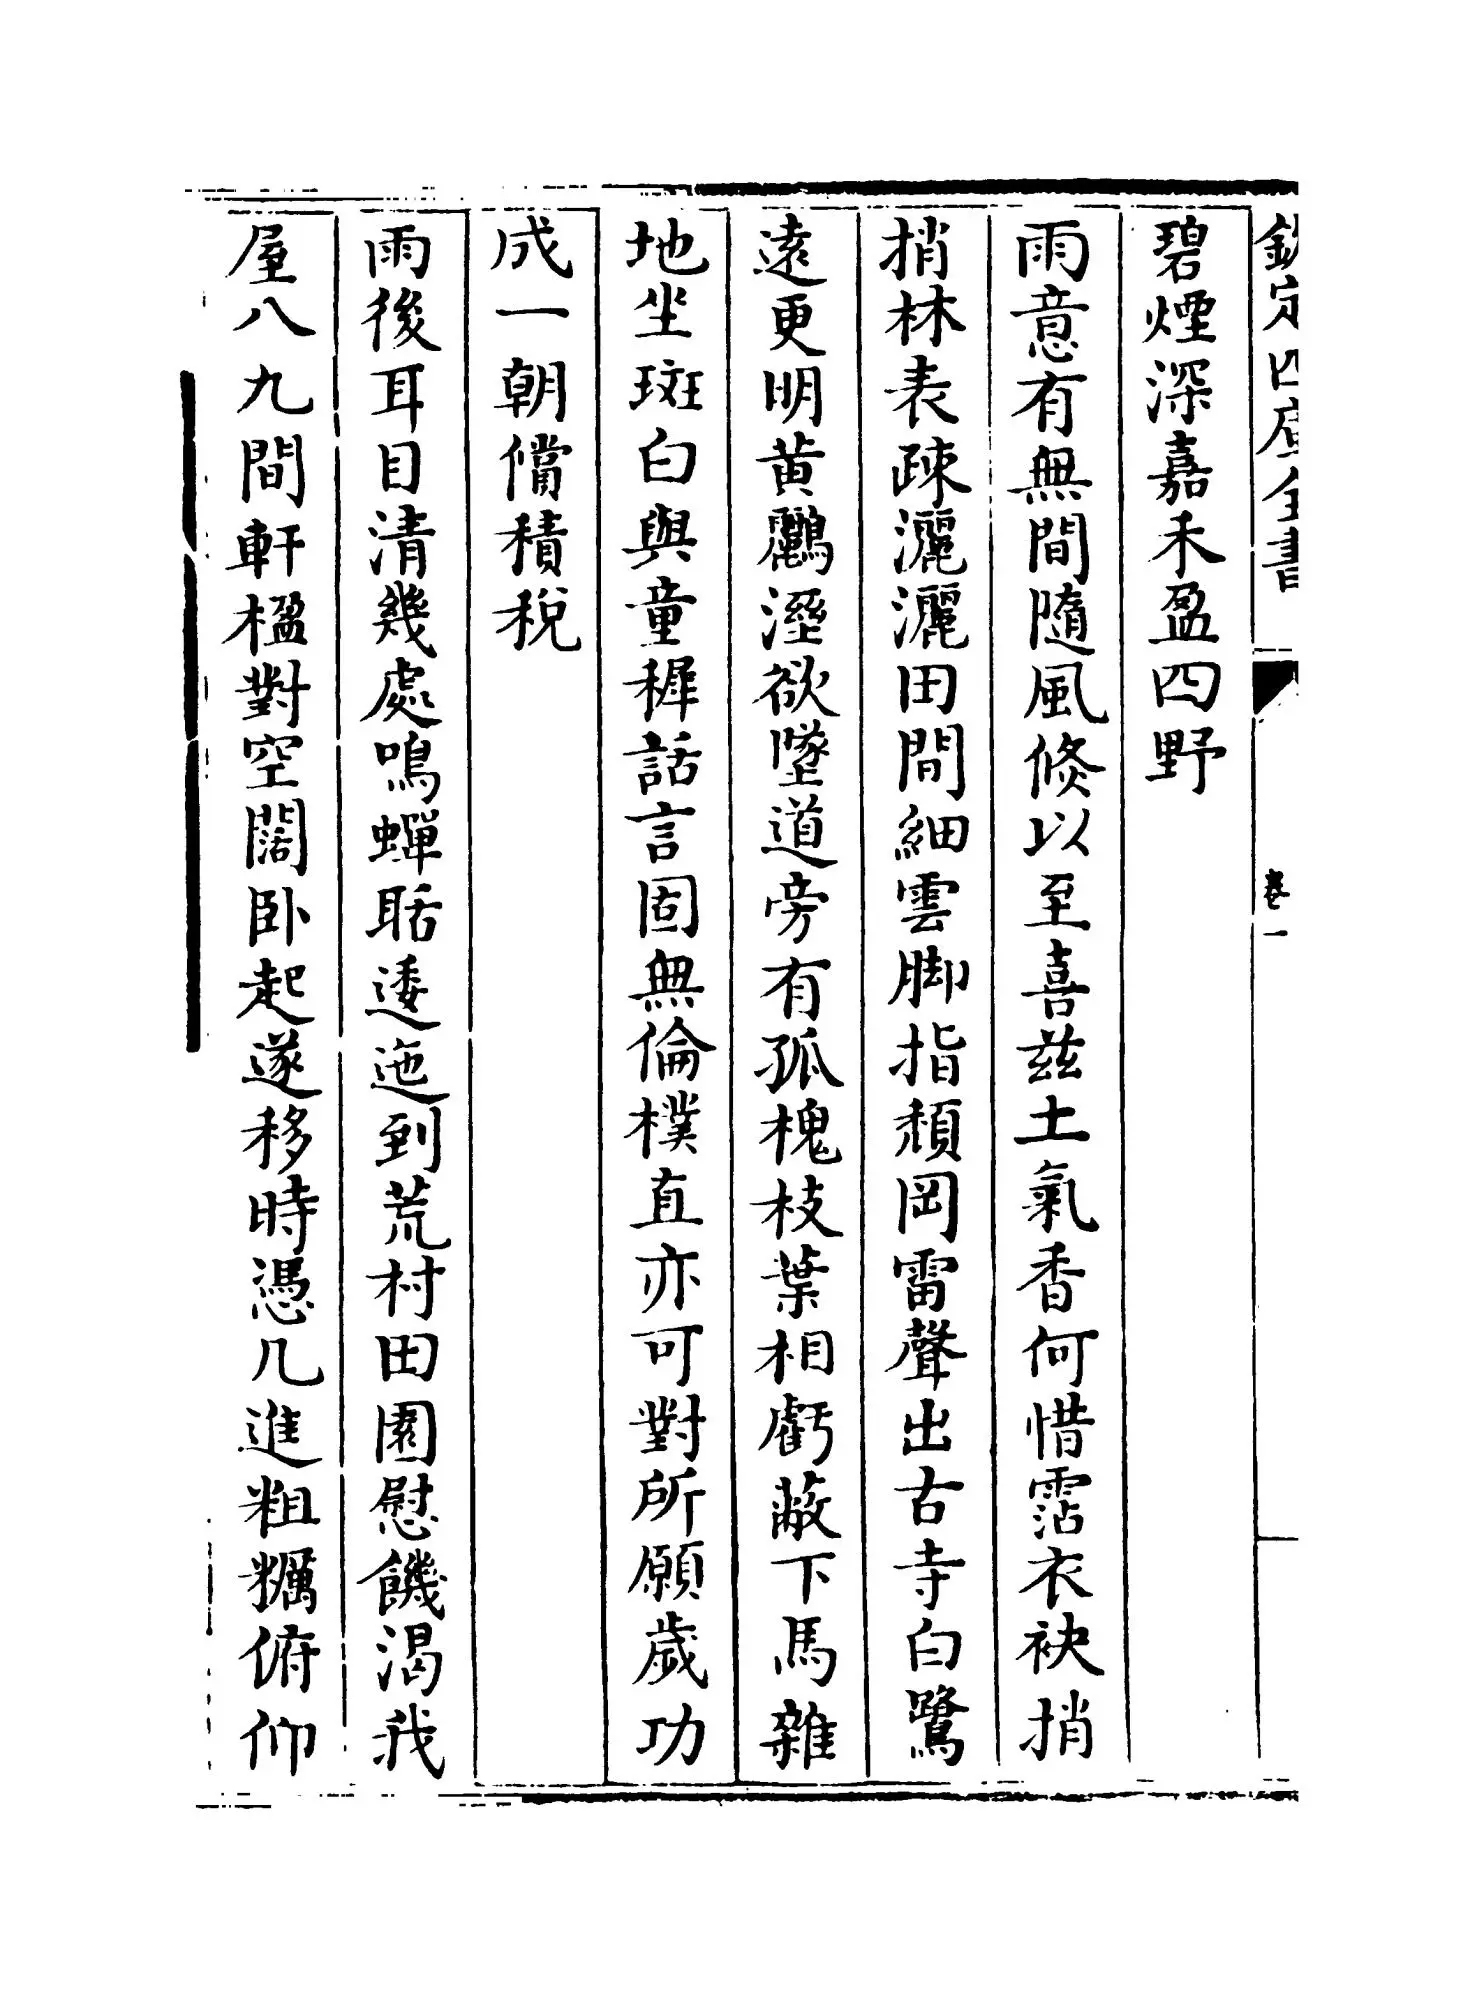 欽定四庫全書
卷一
碧煙深嘉禾盈四野
雨意有無間隨風倐以至喜兹土氣香何惜霑衣袂捎
捎林表疎灑灑田間細雲脚指頹岡雷聲出古寺白鷺
遠更明黄鸝溼欲墜道旁有孤槐枝葉相虧蔽下馬雜
地坐斑白與童穉話言固無倫樸直亦可對所願歲功
成一朝償積稅
雨後耳目清幾處鳴蟬聒逶迤到荒村田園慰饑渴我
屋八九間軒楹對空闊卧起遂移時憑几進粗糲俯仰